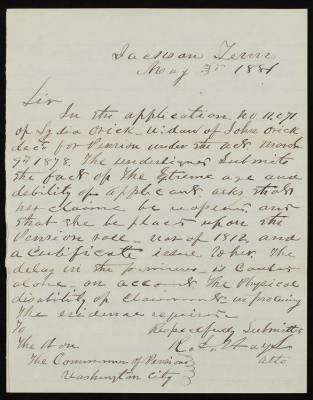 Jackson Tenn
May 3d 1881
Sir
In the application No 11.671
of Lydia Orick widow of John Orick
decd for Pension under the act March
9th 1878. The undersigned Submits
the fact of the Extreme age and
debility of applicant asks that
her claim be reopened and
that she be placed upon the
Pension role – war of 1812, and
a Certificate issue to her. The
delay in the premises is Caused
alone on acct of the Physical
disability of claimant in procuring
the evidence required
To Respectfully Submitted
The Hon R. L. Hays
The Commissioner of Pensions atto
Washington City